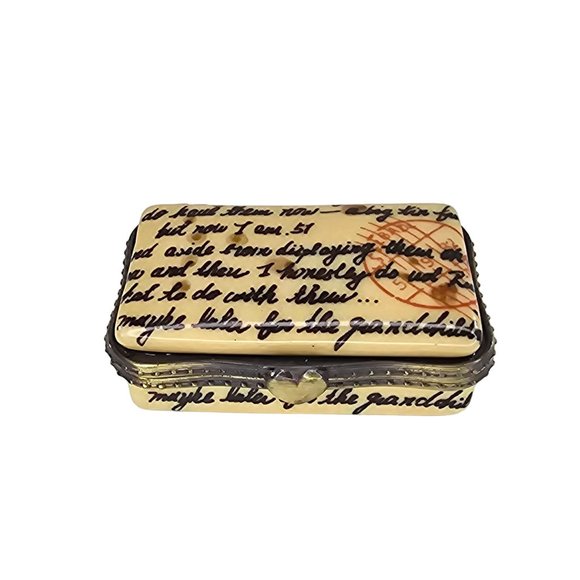 do have them now - a big tin
but now I am 51
aside from displaying them
and then I honestly do not
to do with them...
maybe later for the grandchild
maybe later for the grandchil